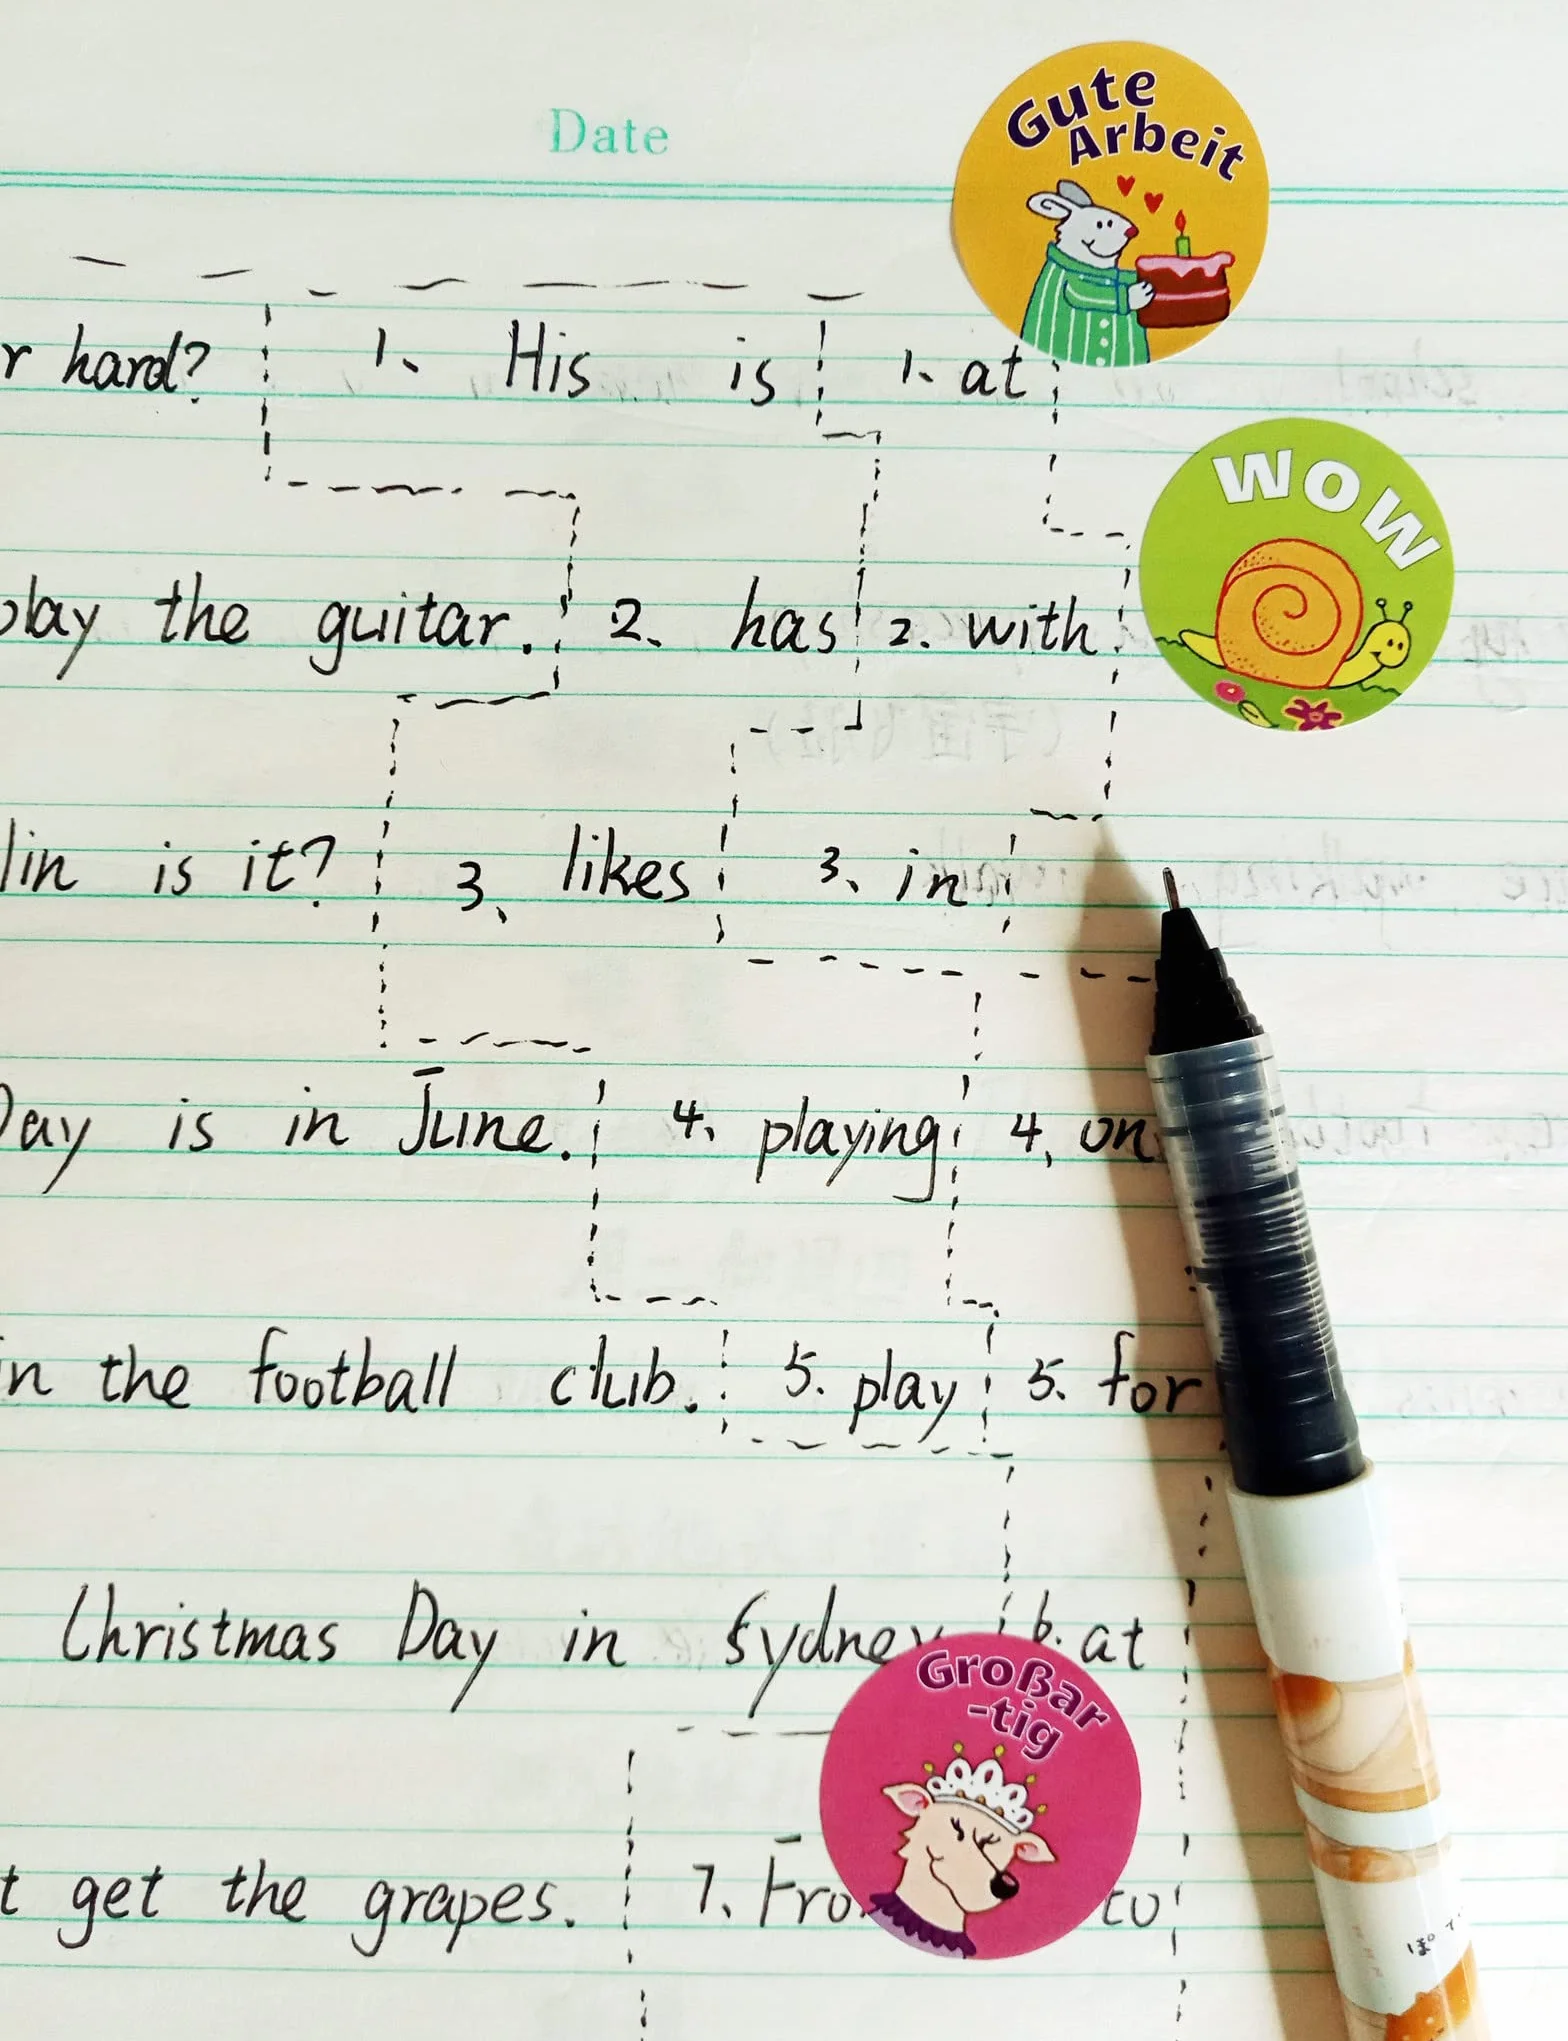 Date
Gute
Arbeit
hard? 1、 His is 1、 at
WOW
the guitar. 2、 has 2. with
is it? 3、 likes 3、 in
Day is in June. 4、 playing 4、 on
in the football club. 5. play 5. for
Christmas Day in Sydney 6. at
Großar
-tig
get the grapes. 7. to